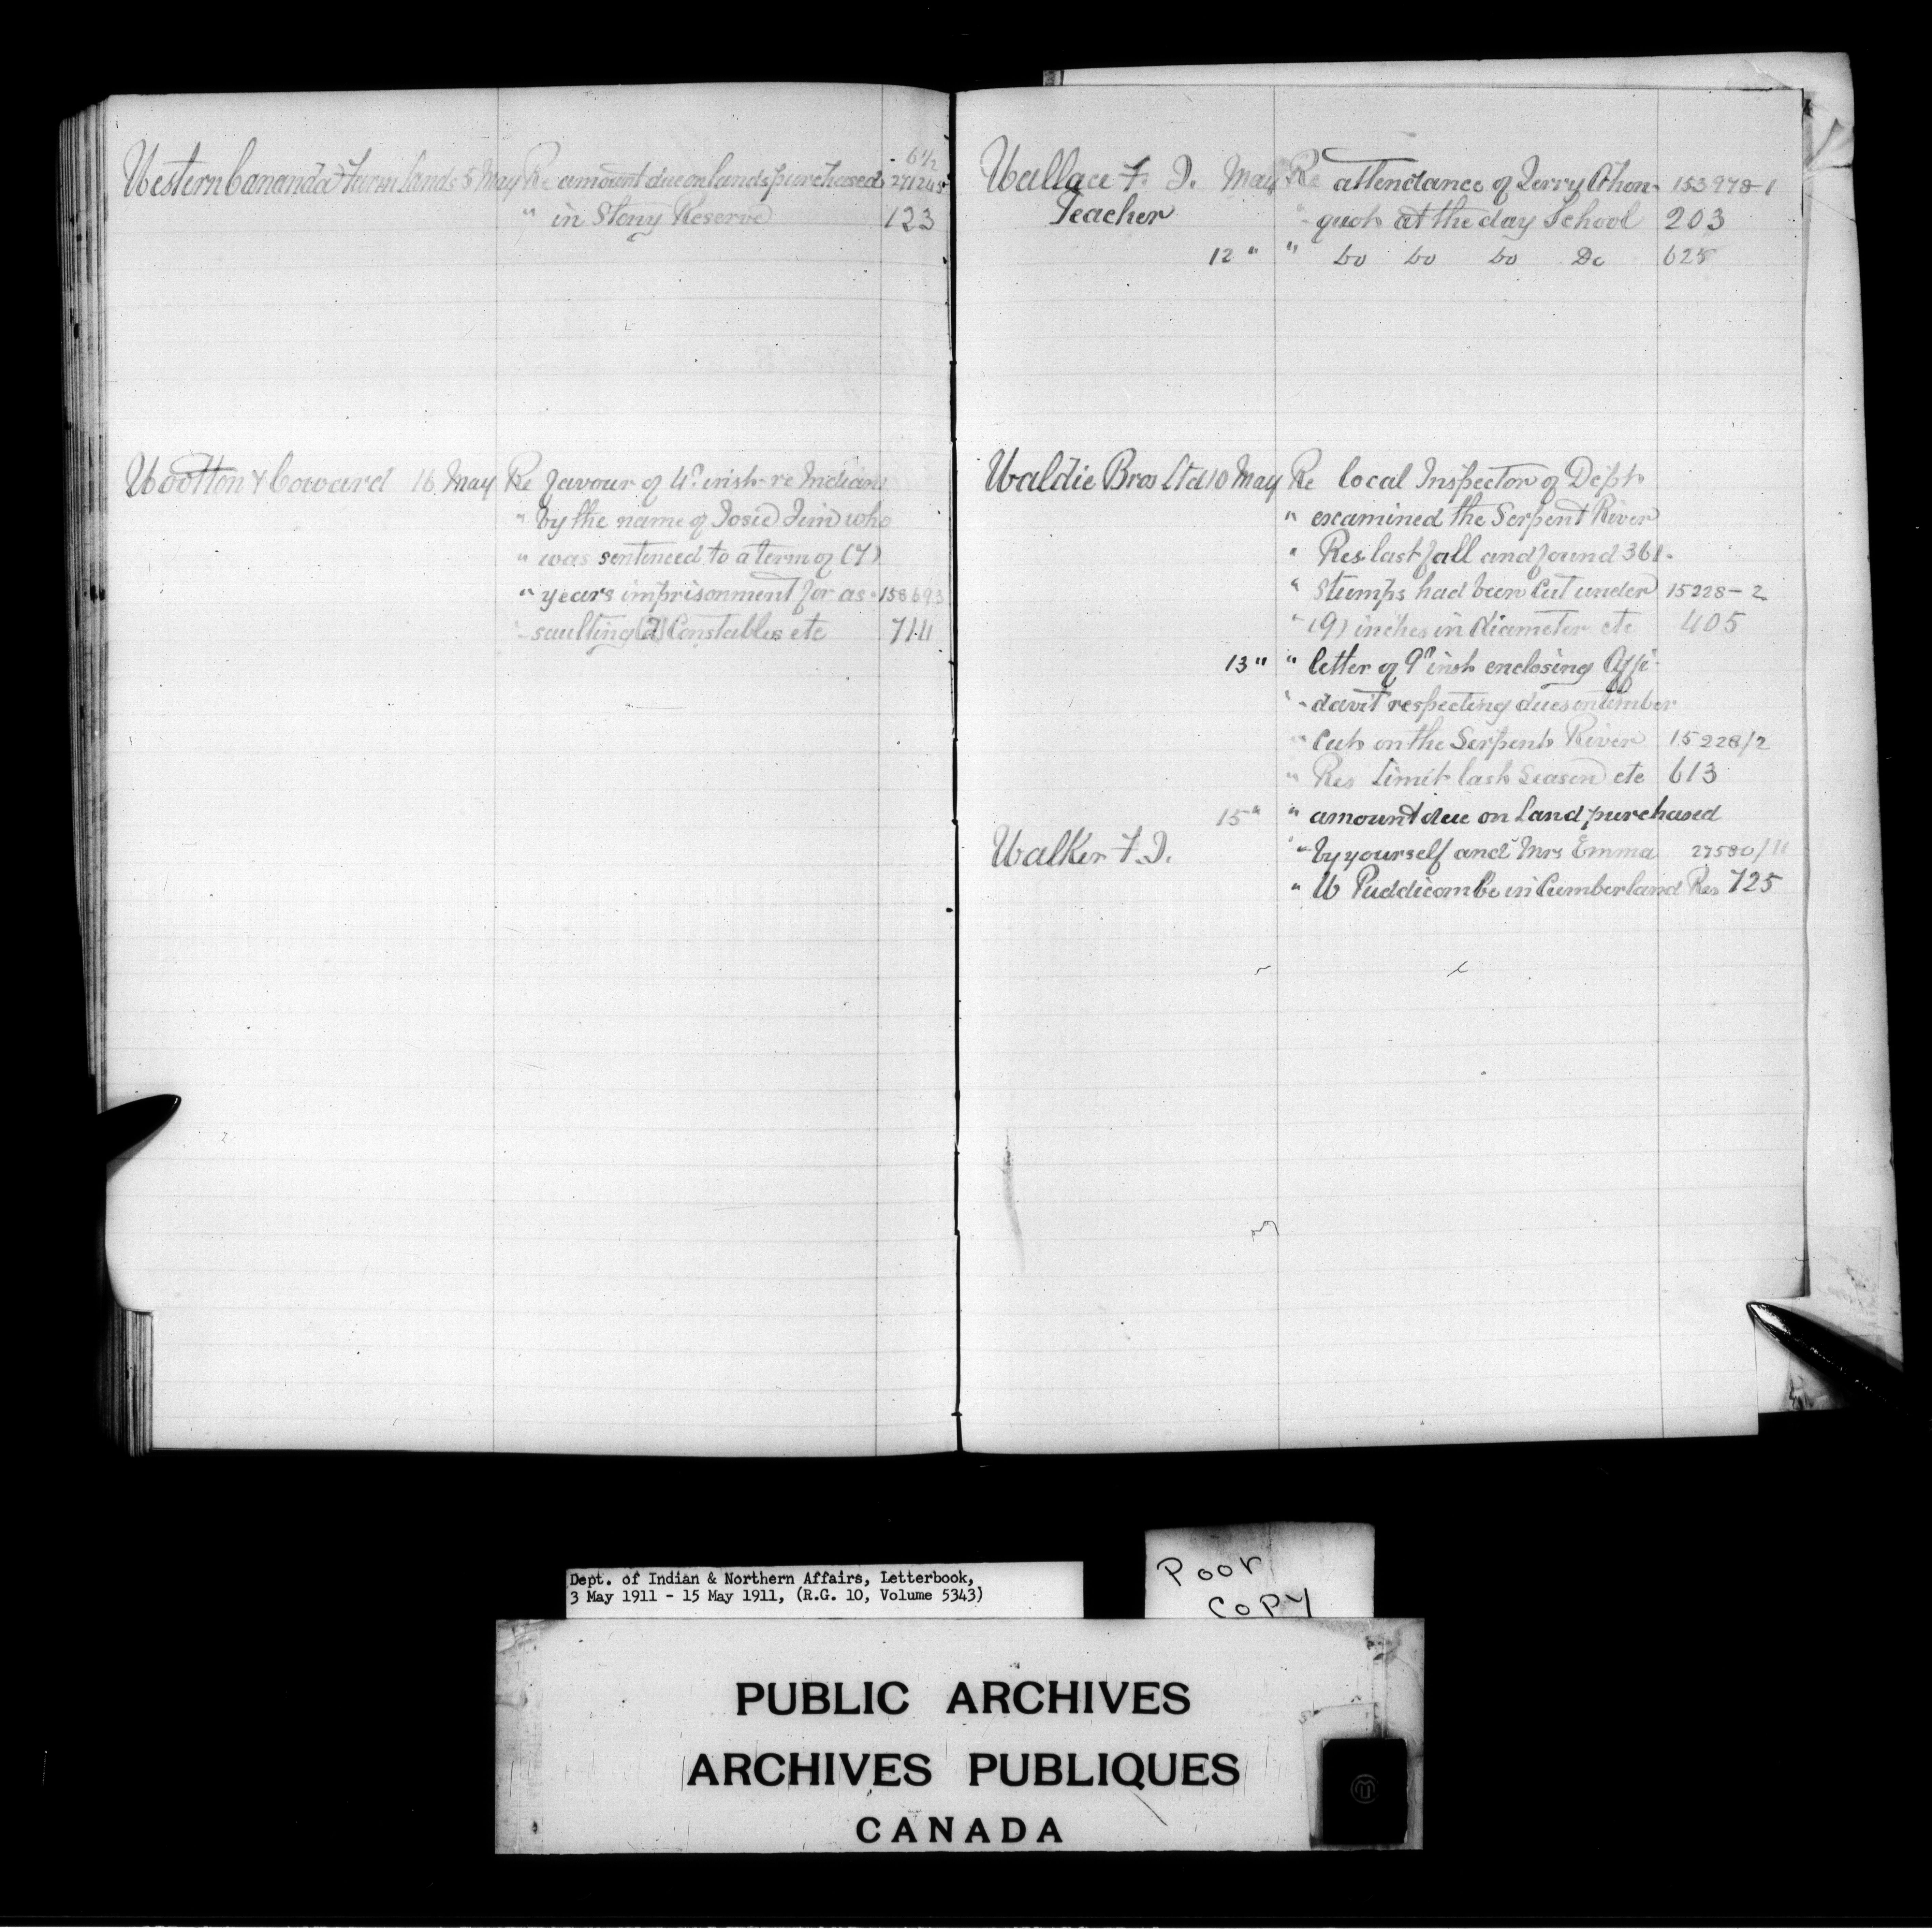 6 1/2
Western Cananda Farm Lands 5 May Re amount due on lands purchased 271245
" in Stony Reserve 123
Wootton & Coward 16 May Re favour of 4th inst-re Indian
" by the name of Josie Jim who
" was sentenced to a term of (7)
" years imprisonment for as- 158693
"- saulting (2) Constables etc 711
Wallace F. J. May Re attendance of Jerry Ahon- 153978-1
Teacher "- quot at the day School 203
12 " " Do Do Do Do 628
Waldie Bros Ltd 10 May Re local Inspector of Dept
" examined the Serpent River
" Res. last fall and found 361-
" stumps had been cut under 15228-2
" (9) inches in diameter etc 405
13 " " letter of 9th inst enclosing Affi-
"- davit respecting dues on timber
" cut on the Serpent River 15228/2
" Res Limit last Season etc 613
15 " " amount due on Land purchased
Walker F. J. " by yourself and Mrs Emma 27580/11
" W Puddicombe in Cumberland Res 725
Dept. of Indian & Northern Affairs, Letterbook,
3 May 1911 - 15 May 1911, (R.G. 10, Volume 5343)
Poor
Copy
PUBLIC ARCHIVES
ARCHIVES PUBLIQUES
CANADA